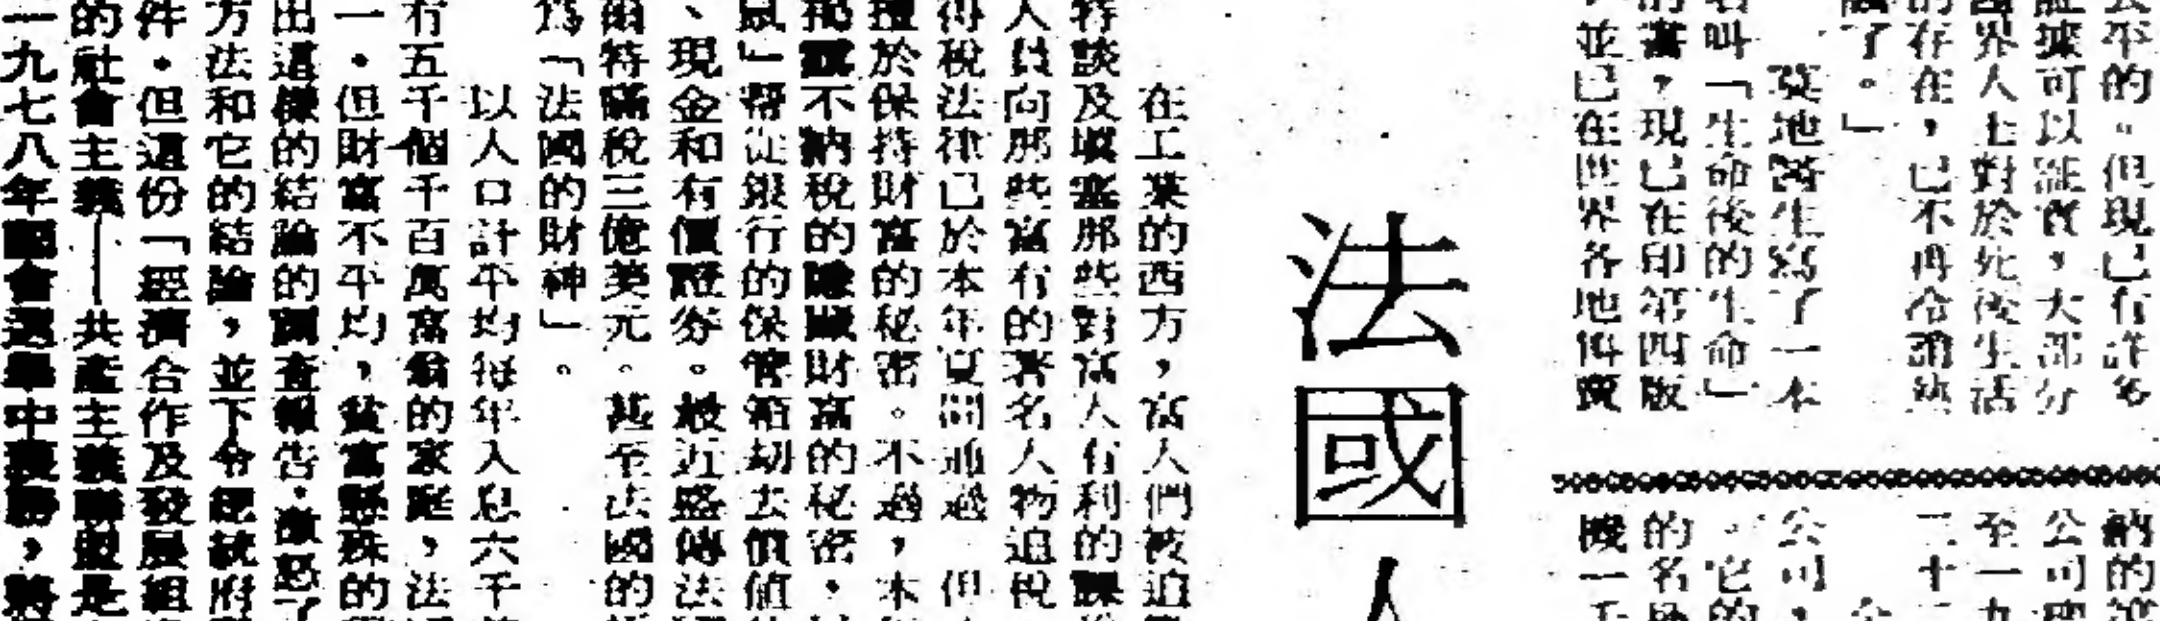 公平的。但現已有許多
證據可以證實，大部分
世界人士對於死後生活
的存在，已不再冷譏熱
諷了。」
莫地醫生寫了一本
名叫「生命後的生命」
的書，現已在印第四版
並已在世界各地
納的
公司
至一九
二十二
公司，
它的
的名
機一千
法國人
在工業的西方，富人們被迫
特談及堵塞那些對富人有利的課
人員向那些富有的著名人物追稅
得稅法律已於本年夏間通過 但
於保持財富的秘密。不過，本
不納稅的隱藏財富的秘密，
鼠」幫從銀行的保管箱劫去價值
、現金和有價證券。最近盛傳法
爾特瞞稅三億美元。甚至法國的
為「法國的財神」。
以人口計平均每年入息六千
有五千個千百萬富翁的家庭，法
一。但財富不平均，貧富懸殊的
出這樣的結論的調查報告，激怒了
方法和它的結論，並下令總統府
件。但這份「經濟合作及發展組
的社會主義——共產主義聯盟是
一九七八年國會選舉中獲勝，將